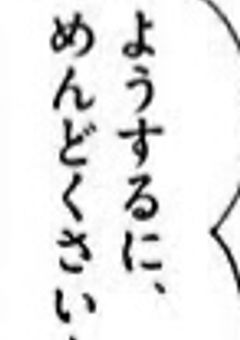 ようするに、
めんどくさい